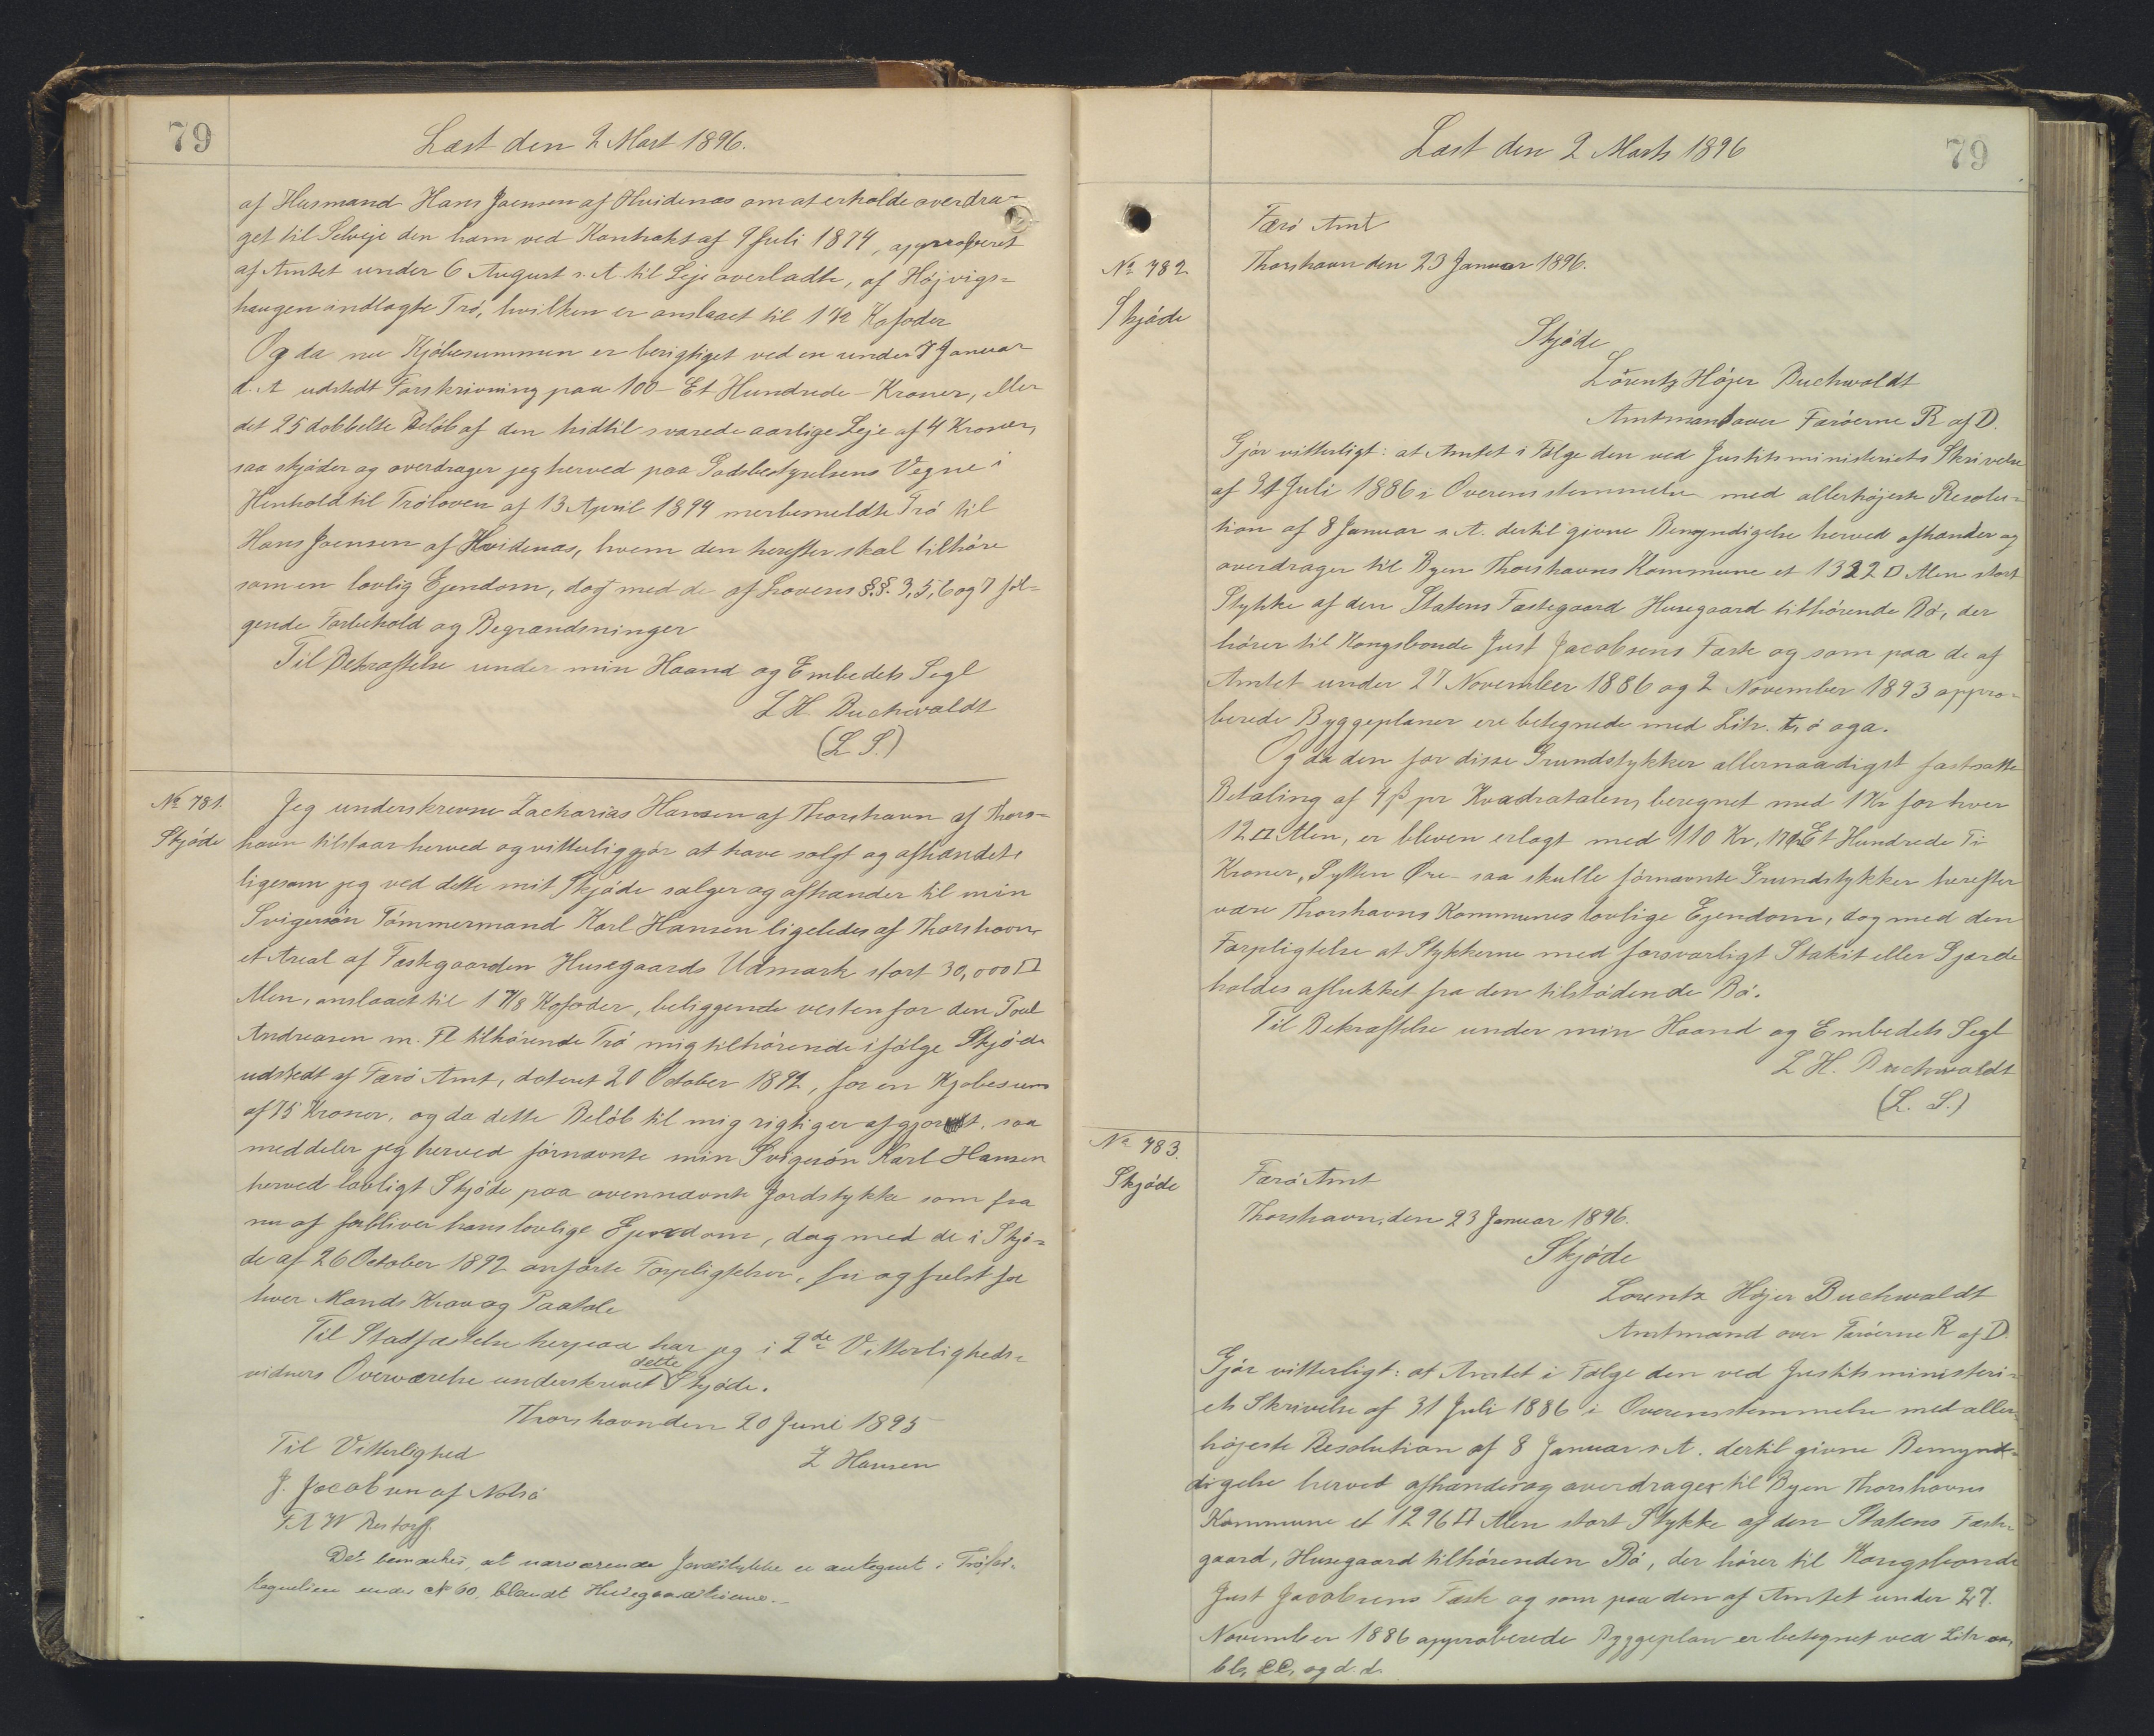 79
Læst den 2 Mart 1896.
af Husmand Hans Joensen af Hvidenæs om at erholde overdra-
get til Selveje den ham ved Kontrakt af 9 Juli 1874, approberet
af Amtet under 6 August s. A. til Leje overladte, af Højvigs=
haugen indlagte Trö, hvilken er anslaaet til 1 1/2 Kofoder
Og da nu Kjöbesummen er berigtiget ved en under 7 Januar
d. A udstedt Forskrivning paa 100 - Et Hundrede - Kroner, eller
det 25 dobbelte Belöb af den hidtil svarede aarlige Leje af 4 Kroner,
saa skjöder og overdrager jeg herved paa Godsbestyrelsens Vegne i
Henhold til Tröloven af 13 April 1894 merbemeldte Trö til
Hans Joensen af Hvidenæs, hvem den herefter skal tilhöre
som en lovlig Ejendom, dog med de af Lovens §.§. 3, 5, 6 og 7 föl=
gende Forbehold og Begrændsninger
Til Bekræftelse under min Haand og Embedets Segl
L H Buchwaldt
(L. S.)
No 781.
Skjöde
Jeg underskrevne Zacharias Hansen af Thorshavn af Thors=
havn tilstaar herved og vitterliggjör at have solgt og afhændet,
ligesom jeg ved dette mit Skjöde sælger og afhænder til min
Svigersön Tömmermand Karl Hansen ligeledes af Thorshavn,
et Areal af Fæstegaarden Husegaards Udmark stort 30,000 □
Alen, anslaaet til 1 7/8 Kofoder, beliggende vesten for den Poul
Andreasen m. Fl tilhörende Trö mig tilhörende ifölge Skjöde
udstedt af Færö Amt, dateret 26 October 1892, for en Kjøbesum
af 75 Kroner, og da dette Belöb til mig rigtig er afgjort, saa
meddeler jeg herved förnævnte min Svigersön Karl Hansen
herved lovligt Skjöde paa ovennævnte Jordstykke som fra
nu af forbliver hans lovlige Ejendom, dog med de i Skjö=
de af 26 October 1892 anförte Forpligtelser, fri og frelst for
hver Mands Krav og Paatale
Til Stadfæstelse herpaa har jeg i 2de Vitterligheds=
vidners Overværelse underskrevet dette Skjöde.
Thorshavn den 20 Juni 1895
Til Vitterlighed
Z Hansen
J. Jacobsen af Nolsö
F. A W Restorff.
Det bemærkes, at nærværende Jordstykke er antegnet i Tröfor-
tegnelsen under No 60, blandt Husegaardströerne.-
79
Læst den 2 Marts 1896
No 782
Skjöde
Færö Amt
Thorshavn den 23 Januar 1896.
Skjöde
Lorentz Höjer Buchwaldt
Amtmand over Færöerne R af D.
Gjör vitterligt: at Amtet i Fölge den ved Justitsministeriets Skrivelse
af 31 Juli 1886 i Overensstemmelse med allerhöjeste Resolu=
tion af 8 Januar s. A. dertil givne Bemyndigelse herved afhænder og
overdrager til Byen Thorshavns Kommune et 1322 □ Alen stort
Stykke af den Statens Fæstegaard Husegaard tilhörende Bö, der
hörer til Kongsbonde Just Jacobsens Fæste og som paa de af
Amtet under 27 November 1886 og 2 November 1893 appro=
berede Byggeplaner ere betegnede med Litr. t, ö og a.
Og da den for disse Grundstykker allernaadigst fastsatte
Betaling af 4 ß pr Kvadratalen, beregnet med 1 Kr for hver
12 □ Alen, er bleven erlagt med 110 Kr, 17 Ø Et Hundrede Ti
Kroner, Sytten Øre - saa skulle förnævnte Grundstykker herefter
være Thorshavns Kommunes lovlige Ejendom, dog med den
Forpligtelse at Stykkerne med forsvarligt Stakit eller Gjærde
holdes aflukket fra den tilstödende Bö.
Til Bekræftelse under min Haand og Embedets Segl
L H. Buchwaldt
(L. S.)
No 783.
Skjöde
Færö Amt
Thorshavn, den 23 Januar 1896.
Skjöde
Lorentz Höjer Buchwaldt
Amtmand over Færöerne R af D.
Gjör vitterligt: at Amtet i Fölge den ved Justitsministeri=
ets Skrivelse af 31 Juli 1886 i Overensstemmelse med aller=
höjeste Resolution af 8 Januar s. A. dertil givne Bemynd=
digelse herved afhænder og overdrager til Byen Thorshavns
Kommune et 1296 □ Alen stort Stykke af den Statens Fæste=
gaard, Husegaard tilhörenden Bö, der hörer til Kongsbonde
Just Jacobsens Fæste og som paa den af Amtet under 27.
November 1886 approberede Byggeplan er betegnet ved Litr aa,
bb, cc, og d. d.